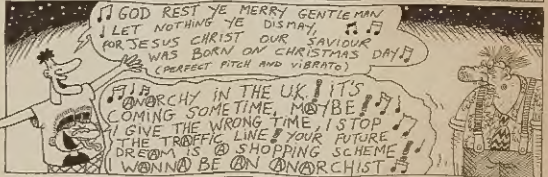 GOD REST YE MERRY GENTLEMAN
LET NOTHING YE DISMAY,
FOR JESUS CHRIST OUR SAVIOUR
WAS BORN ON CHRISTMAS DAY
(PERFECT PITCH AND VIBRATO)
ANARCHY IN THE UK! IT'S
COMING SOMETIME, MAYBE!
I GIVE THE WRONG TIME, I STOP
THE TRAFFIC LINE! YOUR FUTURE
DREAM IS A SHOPPING SCHEME!
I WANNA BE AN ANARCHIST